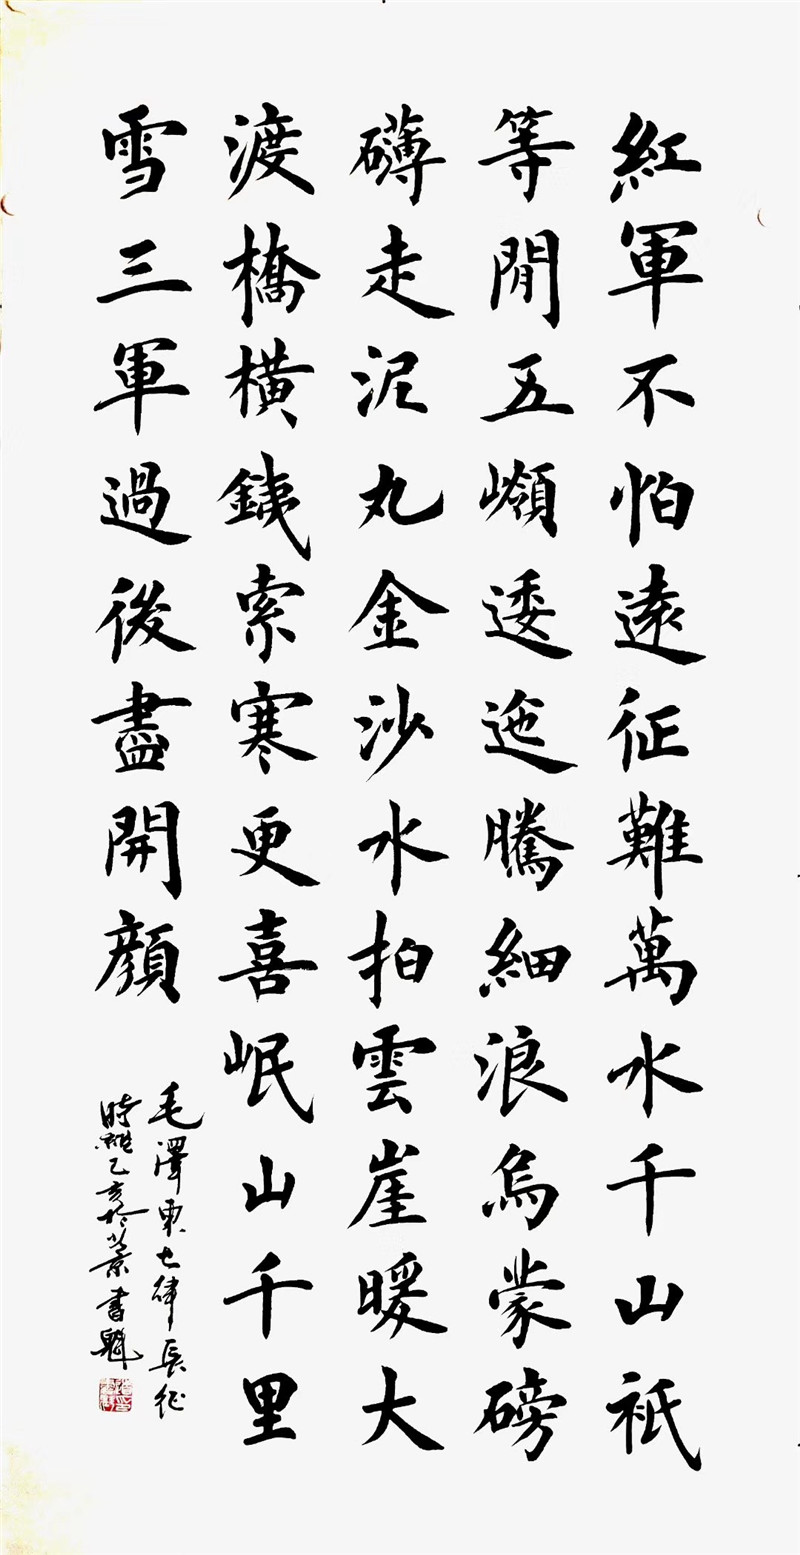 紅軍不怕遠征難萬水千山祇
等閒五嶺逶迤騰細浪烏蒙磅
礴走泥丸金沙水拍雲崖暖大
渡橋橫鐵索寒更喜岷山千里
雪三軍過後盡開顏
毛澤東七律長征
時維乙亥於京書魁